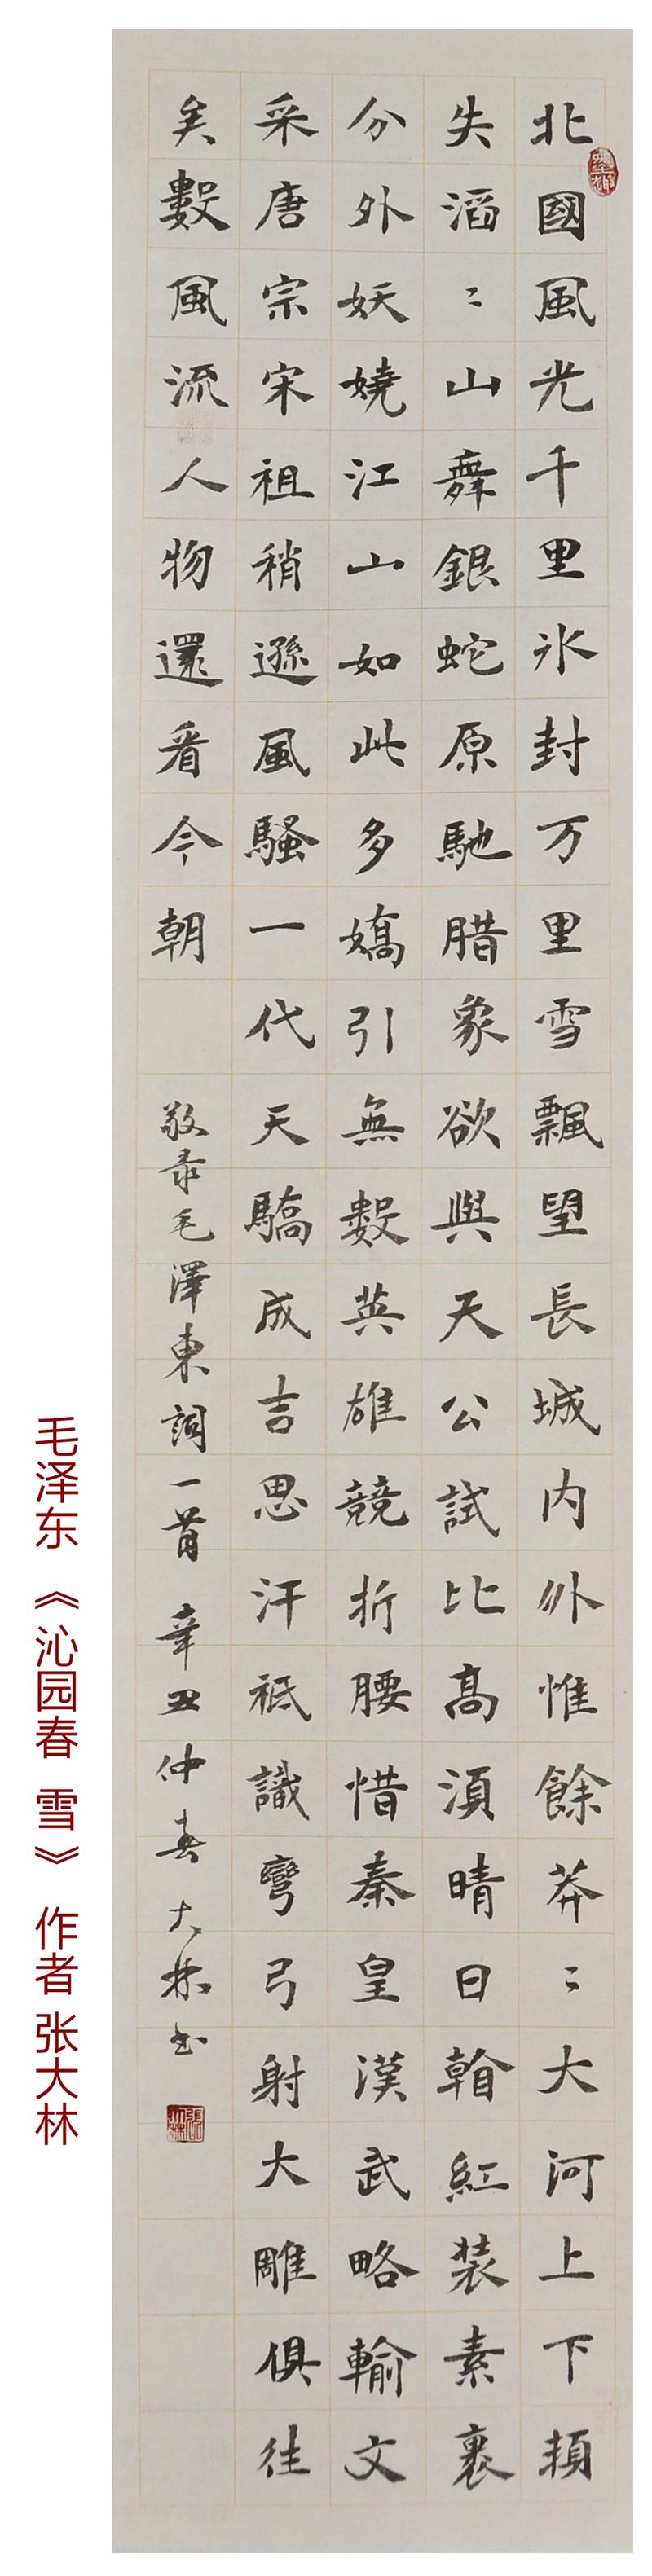 北國風光千里氷封万里雪飄望長城内外惟餘莽〻大河上下頓
失滔〻山舞銀蛇原馳腊象欲與天公試比高湏晴日看紅装素裹
分外妖嬈江山如此多嬌引無數英雄競折腰惜秦皇漢武略輸文
采唐宗宋祖稍遜風騷一代天驕成吉思汗祇識彎弓射大雕俱往
矣數風流人物還看今朝
敬录毛澤東詞一首 辛丑仲春大林书
毛泽东《沁园春 雪》 作者 张大林